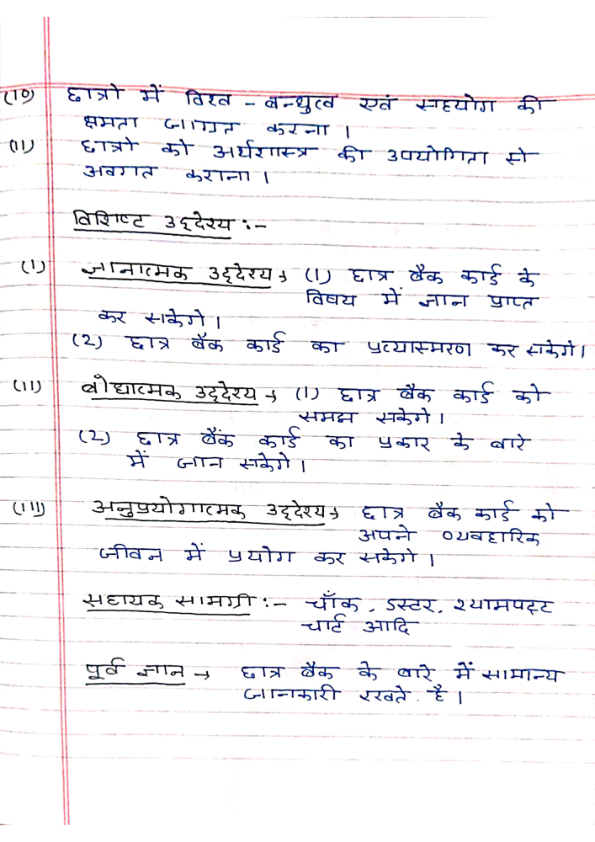 (10) छात्रो में विश्व - बन्धुत्व एवं सहयोग की
क्षमता जाग्रत करना ।
(11) छात्रो को अर्थशास्त्र की उपयोगिता से
अवगत कराना ।
विशिष्ट उद्देश्य :-
(I) ज्ञानात्मक उद्देश्य → (1) छात्र बैक कार्ड के
विषय में ज्ञान प्राप्त
कर सकेगे ।
(2) छात्र बैक कार्ड का प्रत्यास्मरण कर सकेगे।
(II) बोधात्मक उद्देश्य → (1) छात्र बैक कार्ड को
समझ सकेगे ।
(2) छात्र बैंक कार्ड का प्रकार के बारे
में जान सकेगे ।
(III) अनुप्रयोगात्मक उद्देश्य → छात्र बैक कार्ड को
अपने व्यवहारिक
जीवन में प्रयोग कर सकेगे ।
सहायक सामग्री :- चाँक , डस्टर, श्यामपट्ट
चार्ट आदि
पूर्व ज्ञान → छात्र बैक के बारे में सामान्य
जानकारी रखते है ।